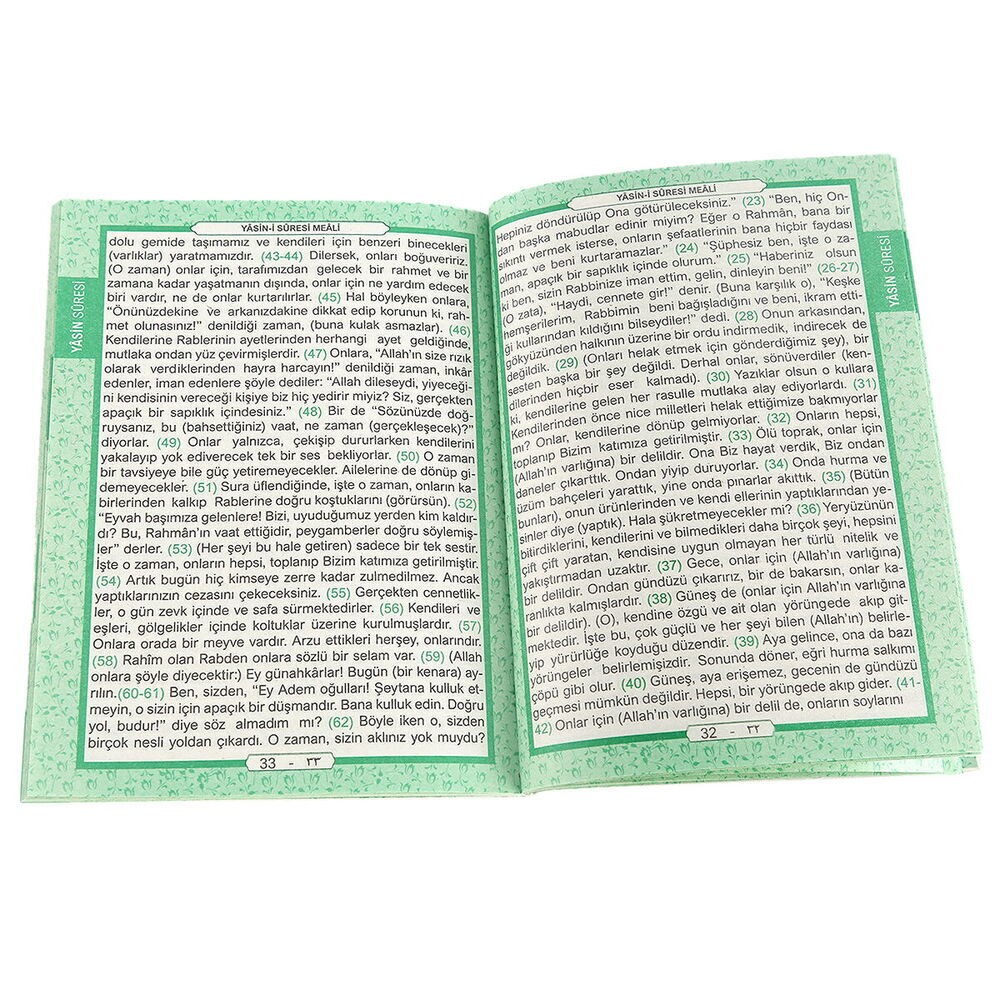 YÂSİN-İ SÛRESİ MEÂLİ
YÂSİN SÛRESİ
Hepiniz döndürülüp Ona götürüleceksiniz.” (23) “Ben, hiç On-
dan başka mabudlar edinir miyim? Eğer o Rahmân, bana bir
sıkıntı vermek isterse, onların şefaatlerinin bana hiçbir faydası
olmaz ve beni kurtaramazlar.” (24) “Şüphesiz ben, işte o za-
man, apaçık bir sapıklık içinde olurum.” (25) “Haberiniz olsun
ki ben, sizin Rabbinize iman ettim, gelin, dinleyin beni!” (26-27)
(O zata), “Haydi, cennete gir!” denir. (Buna karşılık o), “Keşke
hemşerilerim, Rabbimin beni bağışladığını ve beni, ikram etti-
ği kullarından kıldığını bilseydiler!” dedi. (28) Onun arkasından,
gökyüzünden halkının üzerine bir ordu indirmedik, indirecek de
değildik. (29) (Onları helak etmek için gönderdiğimiz şey), bir
sesten başka bir şey değildi. Derhal onlar, sönüverdiler (ken-
dilerinden hiçbir eser kalmadı). (30) Yazıklar olsun o kullara
ki, kendilerine gelen her rasulle mutlaka alay ediyorlardı. (31)
Kendilerinden önce nice milletleri helak ettiğimize bakmıyorlar
mı? Onlar, kendilerine dönüp gelmiyorlar. (32) Onların hepsi,
toplanıp Bizim katımıza getirilmiştir. (33) Ölü toprak, onlar için
(Allah’ın varlığına) bir delildir. Ona Biz hayat verdik, Biz ondan
daneler çıkarttık. Ondan yiyip duruyorlar. (34) Onda hurma ve
üzüm bahçeleri yarattık, yine onda pınarlar akıttık. (35) (Bütün
bunları), onun ürünlerinden ve kendi ellerinin yaptıklarından ye-
sinler diye (yaptık). Hala şükretmeyecekler mi? (36) Yeryüzünün
bitirdiklerini, kendilerini ve bilmedikleri daha birçok şeyi, hepsini
çift çift yaratan, kendisine uygun olmayan her türlü nitelik ve
yakıştırmadan uzaktır. (37) Gece, onlar için (Allah’ın varlığına)
bir delildir. Ondan gündüzü çıkarırız, bir de bakarsın, onlar ka-
ranlıkta kalmışlardır. (38) Güneş de (onlar için Allah’ın varlığına
bir delildir). (O), kendine özgü ve ait olan yörüngede akıp git-
mektedir. İşte bu, çok güçlü ve her şeyi bilen (Allah’ın) belirle-
yip yürürlüğe koyduğu düzendir. (39) Aya gelince, ona da bazı
yörüngeler belirlemişizdir. Sonunda döner, eğri hurma salkımı
çöpü gibi olur. (40) Güneş, aya erişemez, gecenin de gündüzü
geçmesi mümkün değildir. Hepsi, bir yörüngede akıp gider. (41-
42) Onlar için (Allah’ın varlığına) bir delil de, onların soylarını
32 - ٣٢
YÂSİN-İ SÛRESİ MEÂLİ
YÂSİN SÛRESİ
dolu gemide taşımamız ve kendileri için benzeri binecekleri
(varlıklar) yaratmamızdır. (43-44) Dilersek, onları boğuveririz.
(O zaman) onlar için, tarafımızdan gelecek bir rahmet ve bir
zamana kadar yaşatmanın dışında, onlar için ne yardım edecek
biri vardır, ne de onlar kurtarılırlar. (45) Hal böyleyken onlara,
“Önünüzdekine ve arkanızdakine dikkat edip korunun ki, rah-
met olunasınız!” denildiği zaman, (buna kulak asmazlar). (46)
Kendilerine Rablerinin ayetlerinden herhangi ayet geldiğinde,
mutlaka ondan yüz çevirmişlerdir. (47) Onlara, “Allah’ın size rızık
olarak verdiklerinden hayra harcayın!” denildiği zaman, inkâr
edenler, iman edenlere şöyle dediler: “Allah dileseydi, yiyeceği-
ni kendisinin vereceği kişiye biz hiç yedirir miyiz? Siz, gerçekten
apaçık bir sapıklık içindesiniz.” (48) Bir de “Sözünüzde doğ-
ruysanız, bu (bahsettiğiniz) vaat, ne zaman (gerçekleşecek)?”
diyorlar. (49) Onlar yalnızca, çekişip dururlarken kendilerini
yakalayıp yok ediverecek tek bir ses bekliyorlar. (50) O zaman
bir tavsiyeye bile güç yetiremeyecekler. Ailelerine de dönüp gi-
demeyecekler. (51) Sura üflendiğinde, işte o zaman, onların ka-
birlerinden kalkıp Rablerine doğru koştuklarını (görürsün). (52)
“Eyvah başımıza gelenlere! Bizi, uyuduğumuz yerden kim kaldır-
dı? Bu, Rahmân’ın vaat ettiğidir, peygamberler doğru söylemiş-
ler” derler. (53) (Her şeyi bu hale getiren) sadece bir tek sestir.
İşte o zaman, onların hepsi, toplanıp Bizim katımıza getirilmiştir.
(54) Artık bugün hiç kimseye zerre kadar zulmedilmez. Ancak
yaptıklarınızın cezasını çekeceksiniz. (55) Gerçekten cennetlik-
ler, o gün zevk içinde ve safa sürmektedirler. (56) Kendileri ve
eşleri, gölgelikler içinde koltuklar üzerine kurulmuşlardır. (57)
Onlara orada bir meyve vardır. Arzu ettikleri herşey, onlarındır.
(58) Rahîm olan Rabden onlara sözlü bir selam var. (59) (Allah
onlara şöyle diyecektir:) Ey günahkârlar! Bugün (bir kenara) ay-
rılın.(60-61) Ben, sizden, “Ey Adem oğulları! Şeytana kulluk et-
meyin, o sizin için apaçık bir düşmandır. Bana kulluk edin. Doğru
yol, budur!” diye söz almadım mı? (62) Böyle iken o, sizden
birçok nesli yoldan çıkardı. O zaman, sizin aklınız yok muydu?
33 - ٣٣